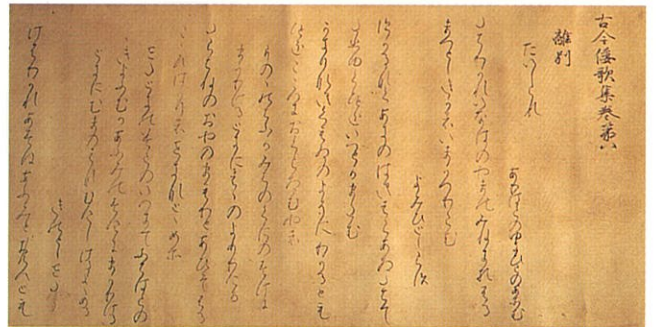 古今倭歌集巻第八
離別
たいしらす
ありはらのゆきひらのあそむ
たちわかれいなはのやまのみねにおふる
まつとしきかはいまかへりこむ
よみひとしらす
すかるなくあきのはきはらあさたちて
たひゆくひとをいつとかまたむ
かきりなきくもゐのよそにわかるとも
ひとをこゝろにおくらさむやは
をのゝちふるかみちのくのすけに
まかりけるときにはゝのよめる
たらちねのおやのまもりとあひそふる
こゝろはかりはせきなとゝめそ
さたときのみこのいへにてふちはらの
きよふかあふみのすけにまかりける
ときにむまのはなむけしけるよめる
きのとしさた
けふわかれあすはあふみとおもへとも